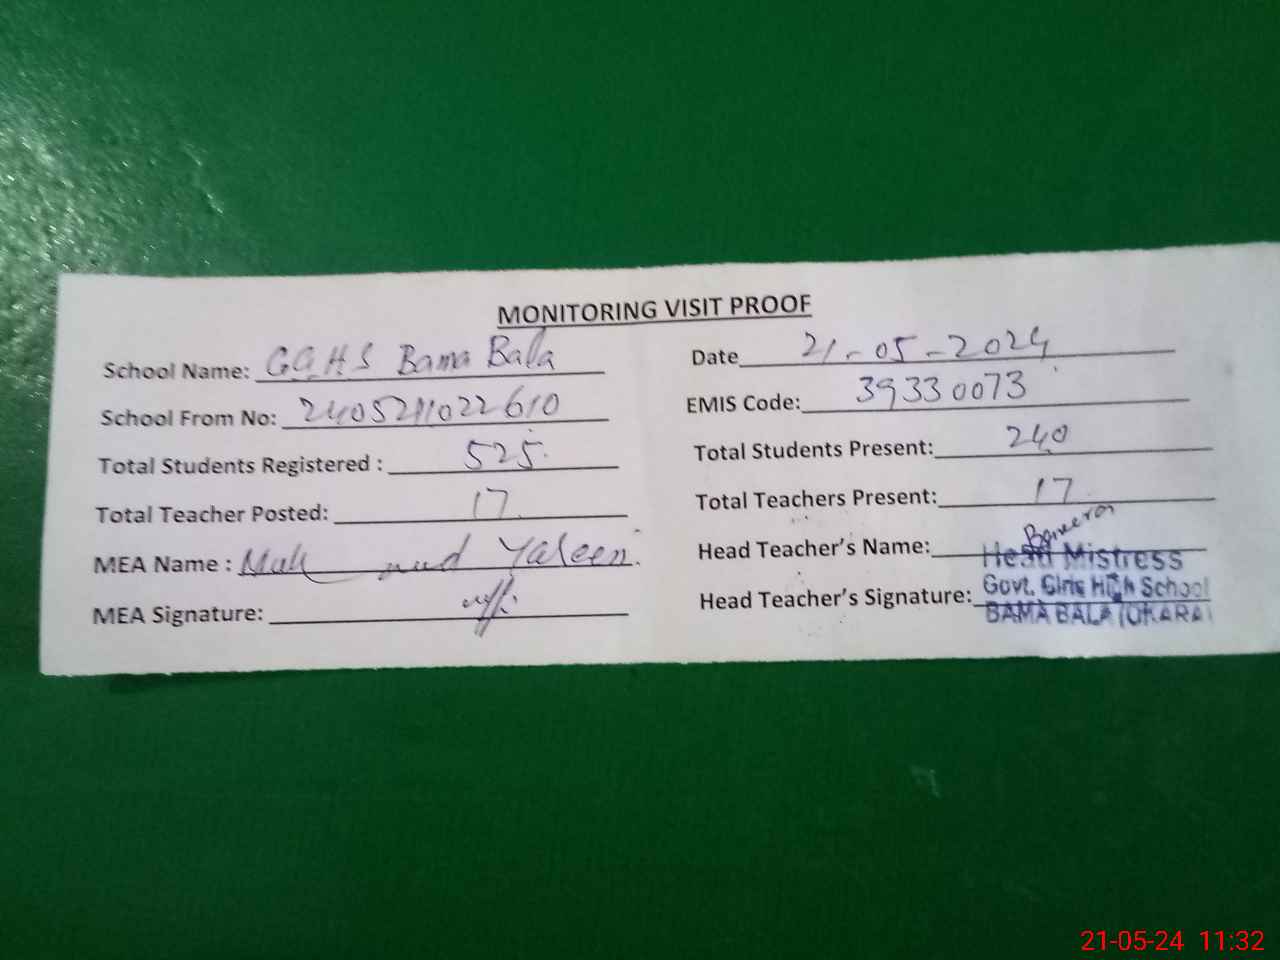 MONITORING VISIT PROOF
School Name: GGHS Bama Bala
Date 21-05-2024
School From No: 2405211022610
EMIS Code: 39330073
Total Students Registered : 525
Total Students Present: 240
Total Teacher Posted: 17
Total Teachers Present: 17
MEA Name : Yaseen
Head Teacher's Name:
Head Mistress
MEA Signature:
Head Teacher's Signature: Govt. Girls High School
BAMA BALA (OKARA)
21-05-24 11:32